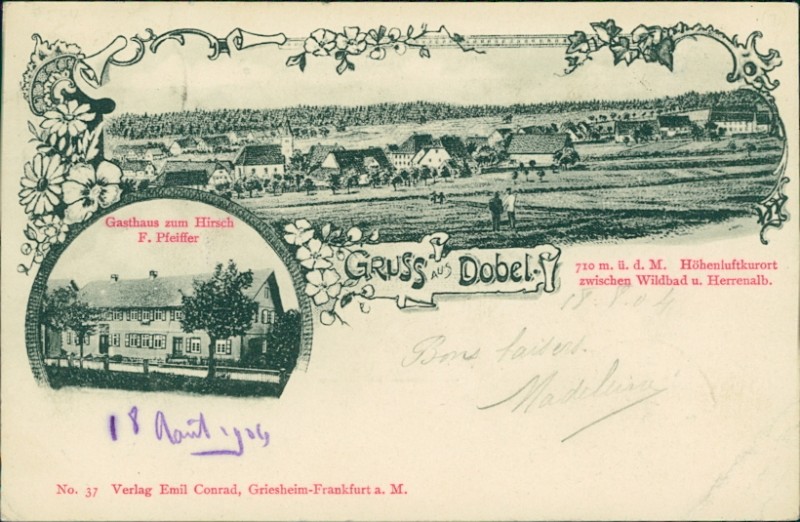 Gasthaus zum Hirsch
F. Pfeiffer
GRUSS AUS DOBEL.
710 m. ü. d. M. Höhenluftkurort
zwischen Wildbad u. Herrenalb.
18.8.04
Bons baisers.
Madeleine
18 Août 1904
No. 37 Verlag Emil Conrad, Griesheim-Frankfurt a. M.